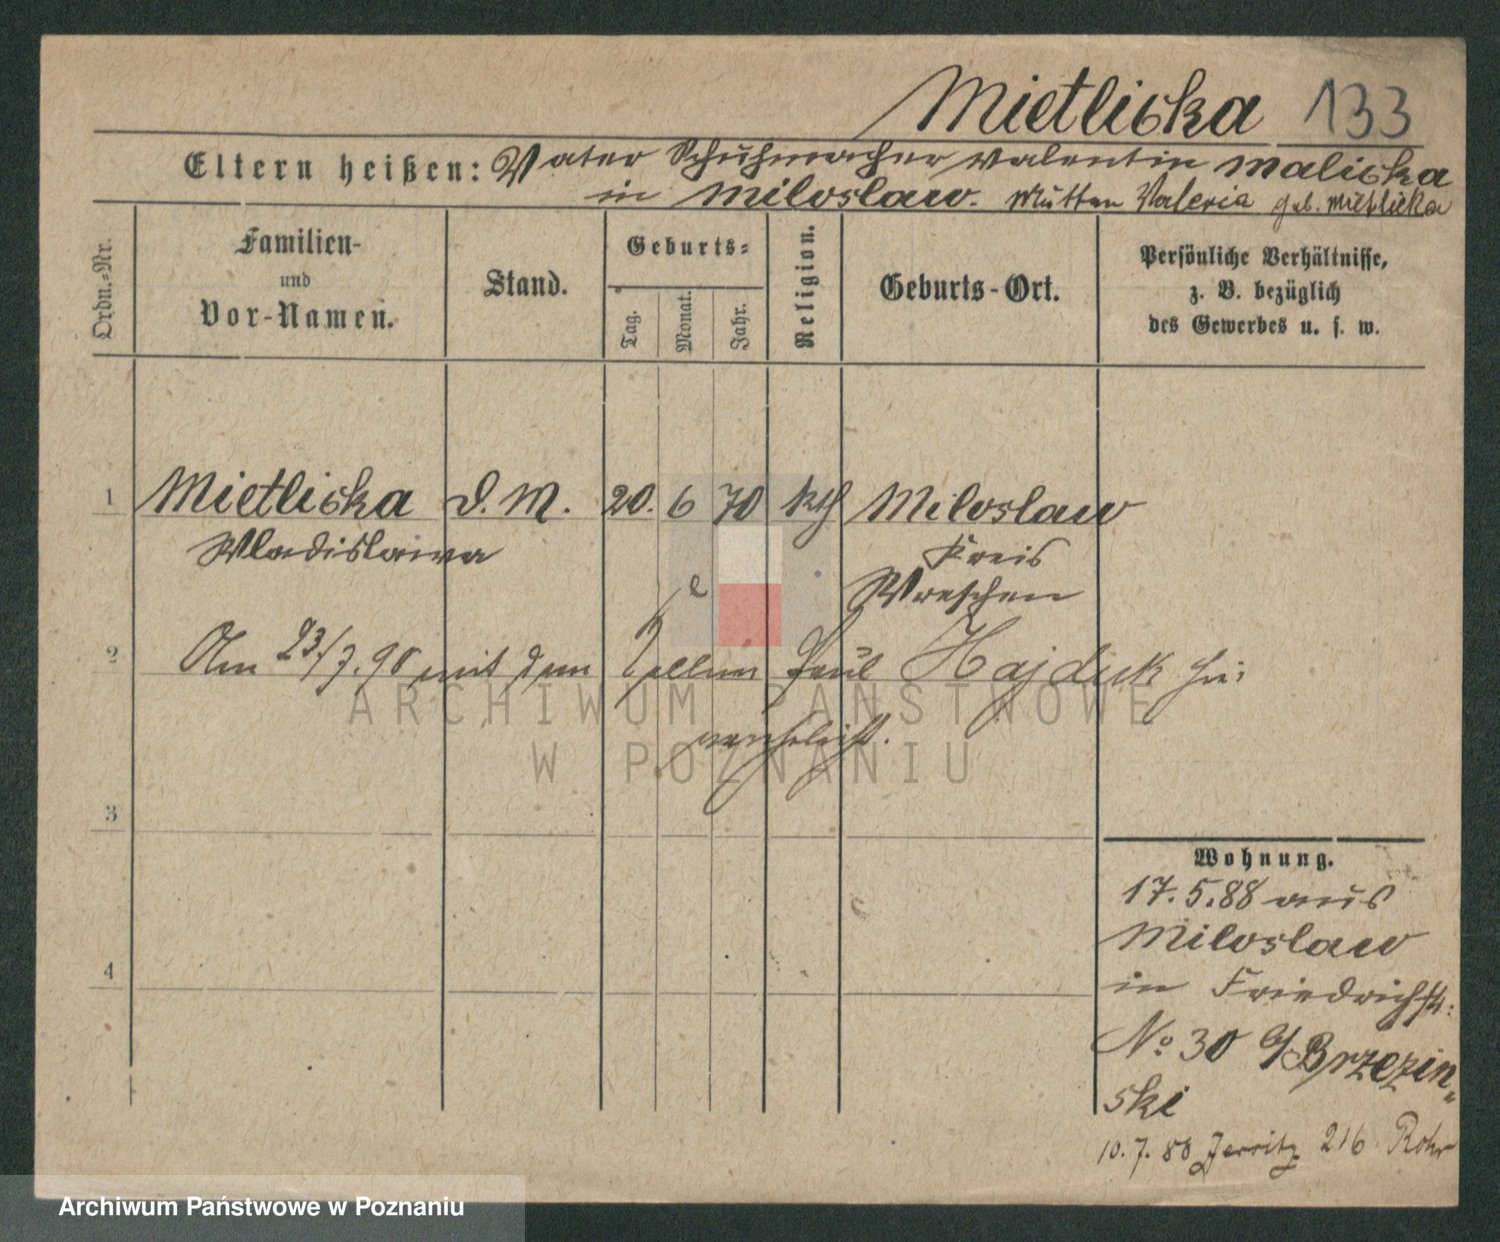 Mietlicka 133
Eltern heißen: Vater Schuhmacher Valentin Malicka
in Miloslaw. Mutter Valeria geb. Mietlicka
Ordn.-Nr.
Familien-
und
Vor-Namen.
Stand.
Geburts-
Tag.
Monat.
Jahr.
Religion.
Geburts-Ort.
Persönliche Verhältnisse,
z. B. bezüglich
des Gewerbes u. s. w.
1 Mietlicka d. M. 20. 6 70 kth Miloslaw
Wladislawa Kreis
Wreschen
2 Am 23/7.90 mit dem Paul Hajduk hier
verehelicht.
3
4
Wohnung.
17.5.88 aus
Miloslaw
in Friedrichstr:
No 30 b/ Brzezin-
ski
10.7.88 Jersitz 216 Rohr
ARCHIWUM PAŃSTWOWE
W POZNANIU
Archiwum Państwowe w Poznaniu